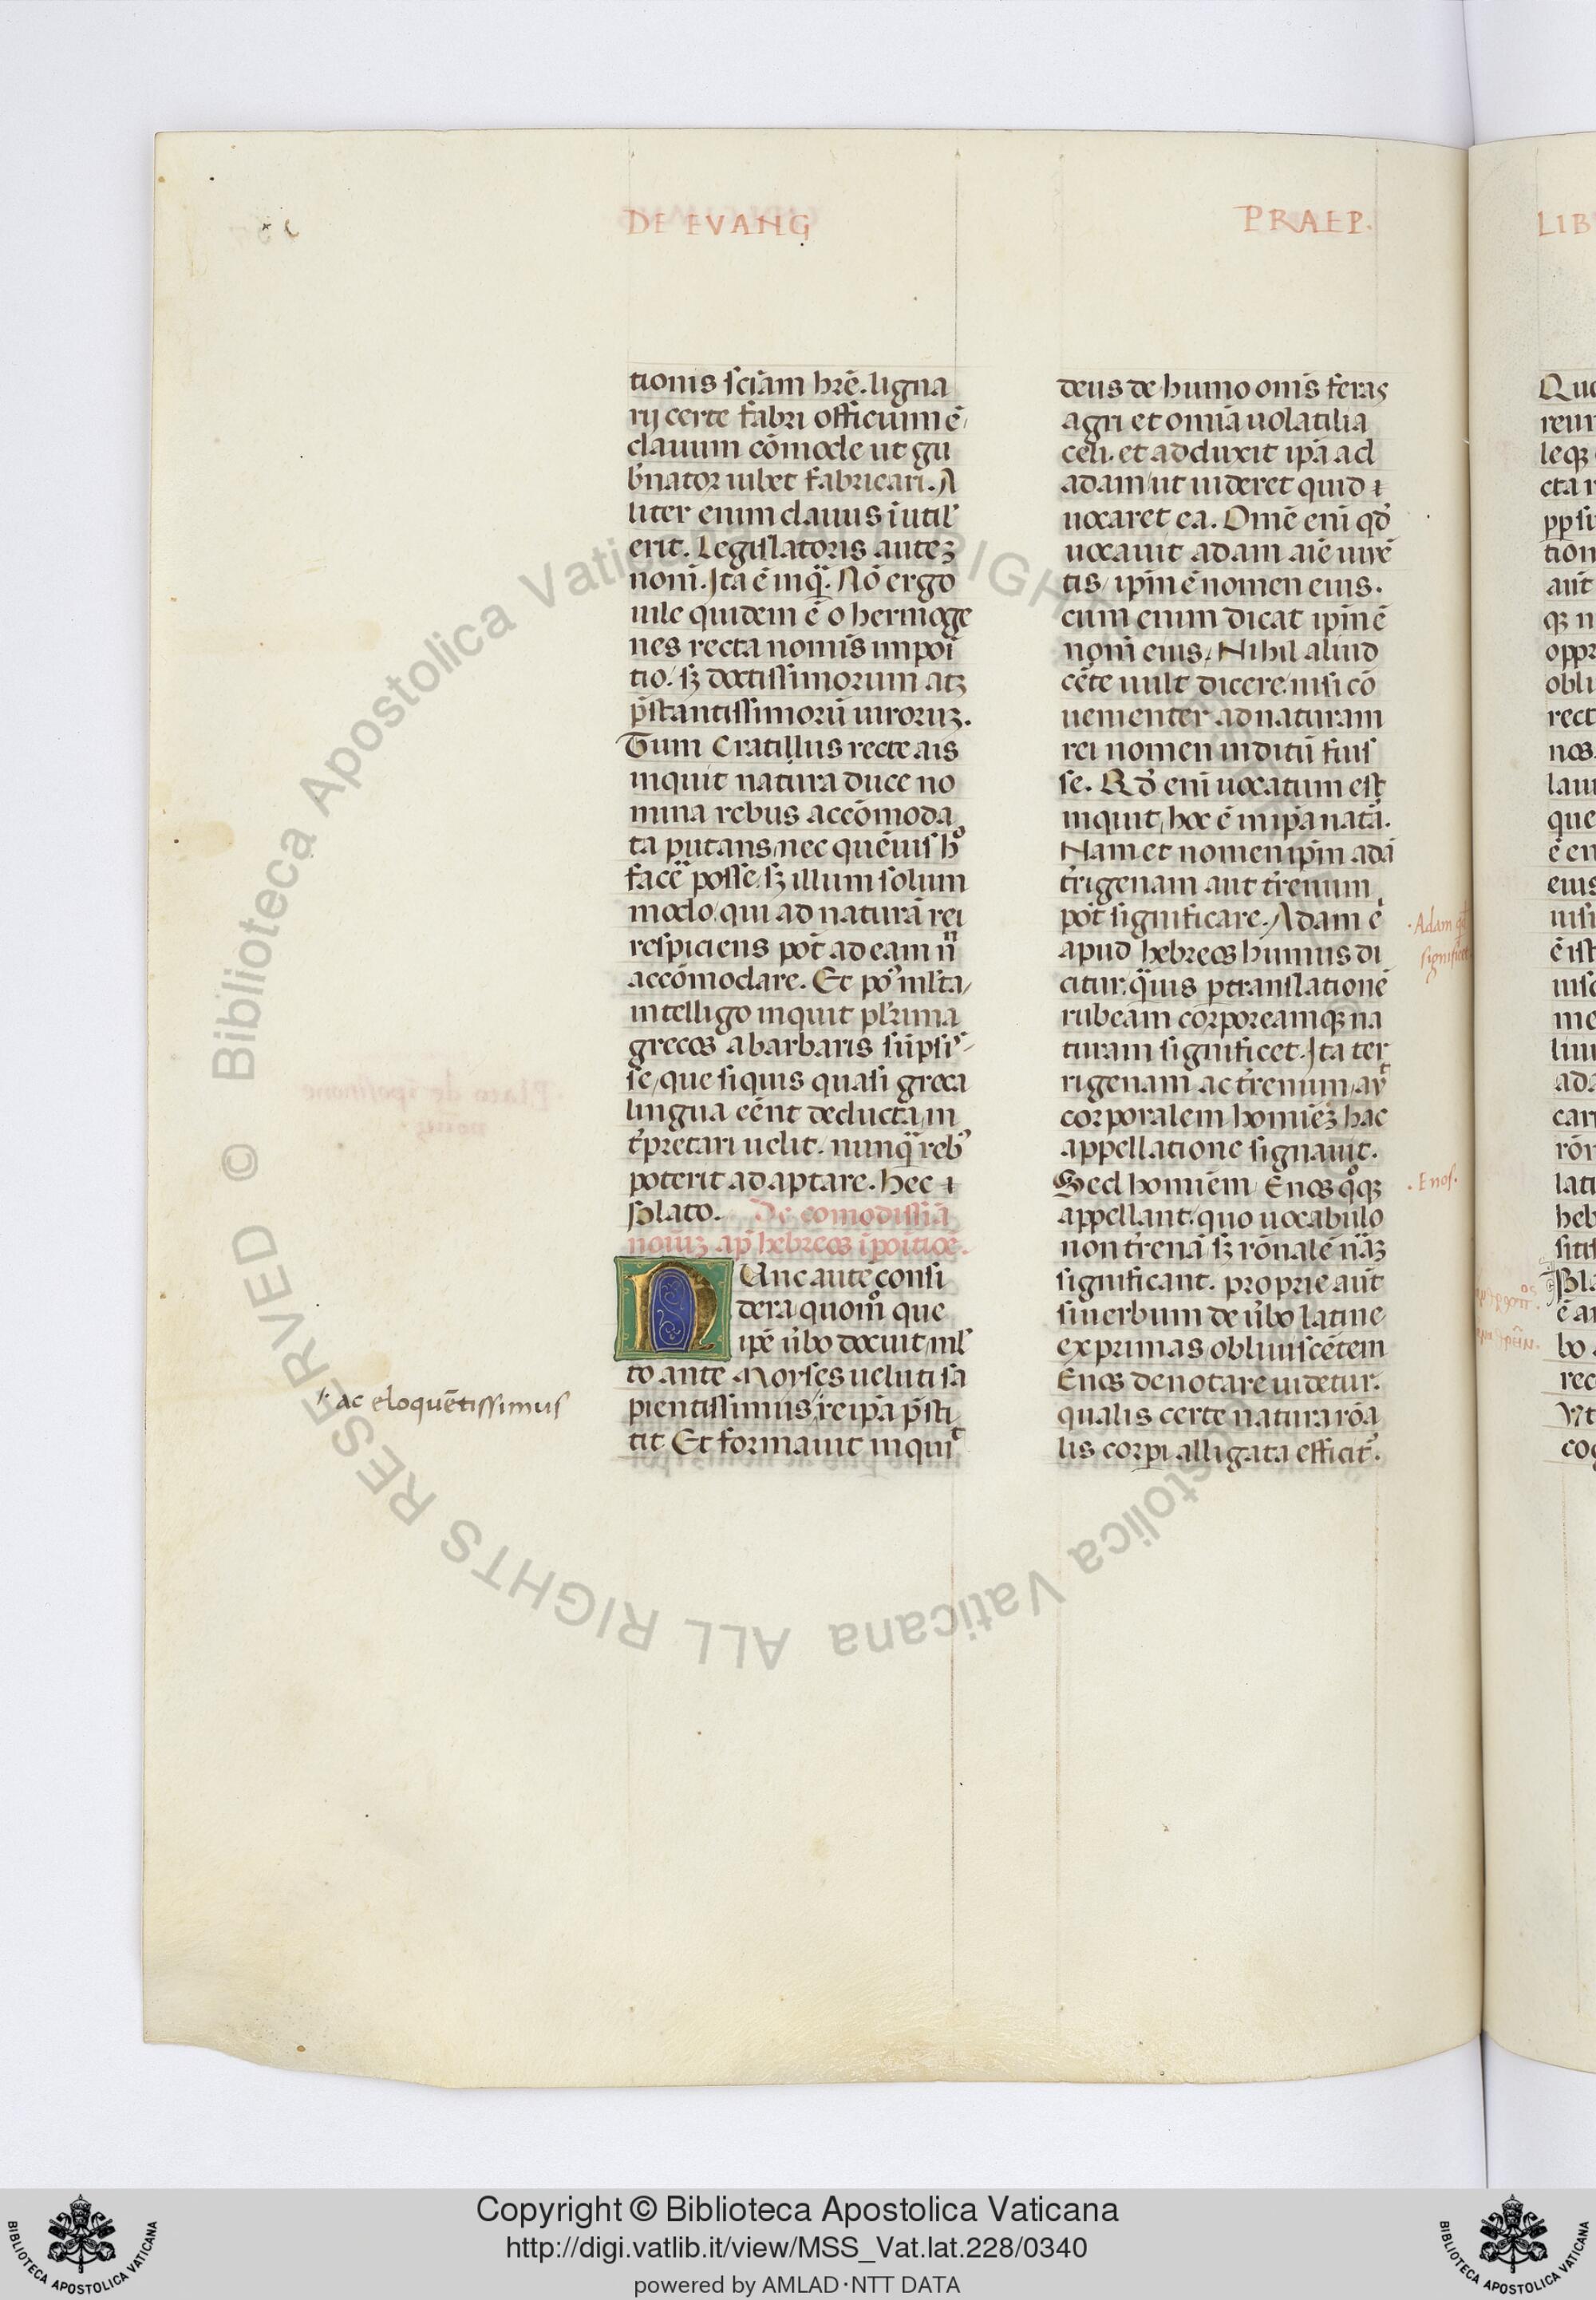 DE EVANG
PRAEP.
tionis sciam hr̄e. ligna
rij certe fabri officium ē
clauum cōmode ut gu
b̄nator iubet fabricari. A
liter enim clauus īutil'
erit. Legislatoris autez
nom̄. Ita ē inq̄. Nō ergo
uile quidem ē o hermoge
nes recta nomīs impoī
tio. sꝫ doctissimorum atꝫ
p̄stantissimorū uiroruꝫ.
Tum Cratillus recte ais
inquit natura duce no
mina rebus accōmoda
ta putans, nec quēuis hº
facē posse, sꝫ illum solum
modo, qui ad naturā rei
respiciens pōt ad eam n̄
accōmodare. Et po' ml̄ta,
intelligo inquit pl'rima
grecos a barbaris sūpsi'
se, que siquis quasi greca
lingua eēnt deducta, in
t̄pretari uelit. nunq̄ reb'
poterit adaptare. hec ⁊
Plato. De comodissīā
noīuꝫ ap̄ hebreos īpoītiōe.
NUnc autē consi
dera quom̊ que
ipē ūbo docuit, ml'
to ante Moyses ueluti sa
pientissimus, reipā p̄sti
tit Et formauit inquit
ac eloquētissimus
deus de humo om̄s feras
agri et om̄ia uolatilia
celi. et adduxit ip̄a ad
adam, ut uideret quid ⁊
uocaret ea. Omē enī qđ
uocauit adam aīe uiuē
tis, ip̄m ē nomen eius.
cum enim dicat ip̄m ē
nom̄ eius, Nihil aliud
cēte uult dicere, nisi cō
uementer ad naturam
rei nomen inditū fuis
se. Qđ enī uocatum est
inquit, hoc ē in ip̄a natā.
Nam et nomen ip̄m adā
t̄rigenam aut t̄renum
pōt significare. Adam ē
apud hebreos humus di
citur, q̄uis p translationē
rubeam corpoream qꝫ na
turam significet. Ita ter
rigenam ac t̄renum, aut
corporalem homīeꝫ hac
appellatione signauit.
Sed homīem Enos qºqꝫ
appellant. quo uocabulo
non t̄renā sꝫ rōnalē nāꝫ
significant. proprie aūt
si uerbum de ūbo latine
exprimas, obliuiscētem
Enos denotare uidetur.
qualis certe natura rōa
lis corp̄i alligata efficit̄.
Adam qđ
significet
. Enos.
LIB
Copyright © Biblioteca Apostolica Vaticana
http://digi.vatlib.it/view/MSS_Vat.lat.228/0340
powered by AMLAD·NTT DATA